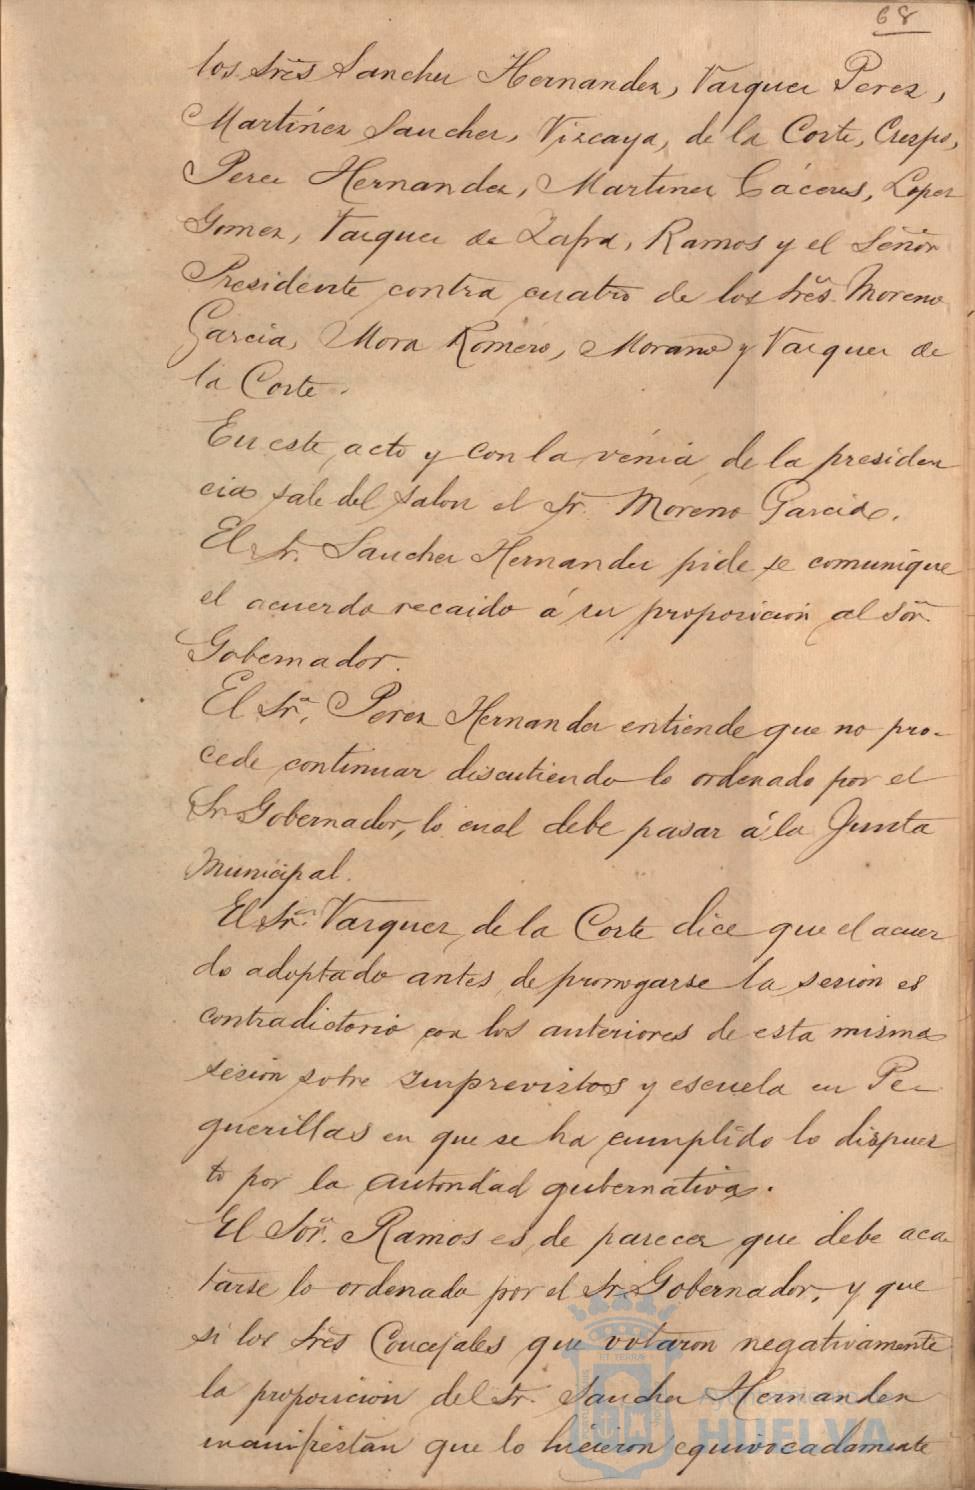 68
los Sres Sanchez Hernandez, Vazquez Perez,
Martinez Sanchez, Vizcaya, de la Corte, Crespo,
Perez Hernandez, Martinez Cáceres, Lopez
Gomez, Vazquez de Zafra, Ramos y el Señor
Presidente contra cuatro de los Sres. Moreno
Garcia, Mora Romero, Morano y Vazquez de
la Corte.
En este acto y con la vénia de la presiden
cia sale del salon el Sr. Moreno Garcia.
El Sr. Sanchez Hernandez pide se comunique
el acuerdo recaido á su proposicion al Sor.
Gobernador.
El Sr. Perez Hernandez entiende que no pro-
cede continuar discutiendo lo ordenado por el
Sr Gobernador, lo cual debe pasar á la Junta
Municipal.
El Sr. Vazquez de la Corte dice que el acuer
do adoptado antes de prorrogarse la sesion es
contradictorio con los anteriores de esta misma
sesion sobre imprevistos y escuela en Pe-
guerillas en que se ha cumplido lo dispues
to por la autoridad gubernativa.
El Sor. Ramos es de parecer que debe aca
tarse lo ordenado por el Sr. Gobernador, y que
si los Sres Concejales que votaron negativamente
la proposicion del Sr. Sanchez Hernandez
manifiestan que lo hicieron equivocadamente
Ayuntamiento de
HUELVA